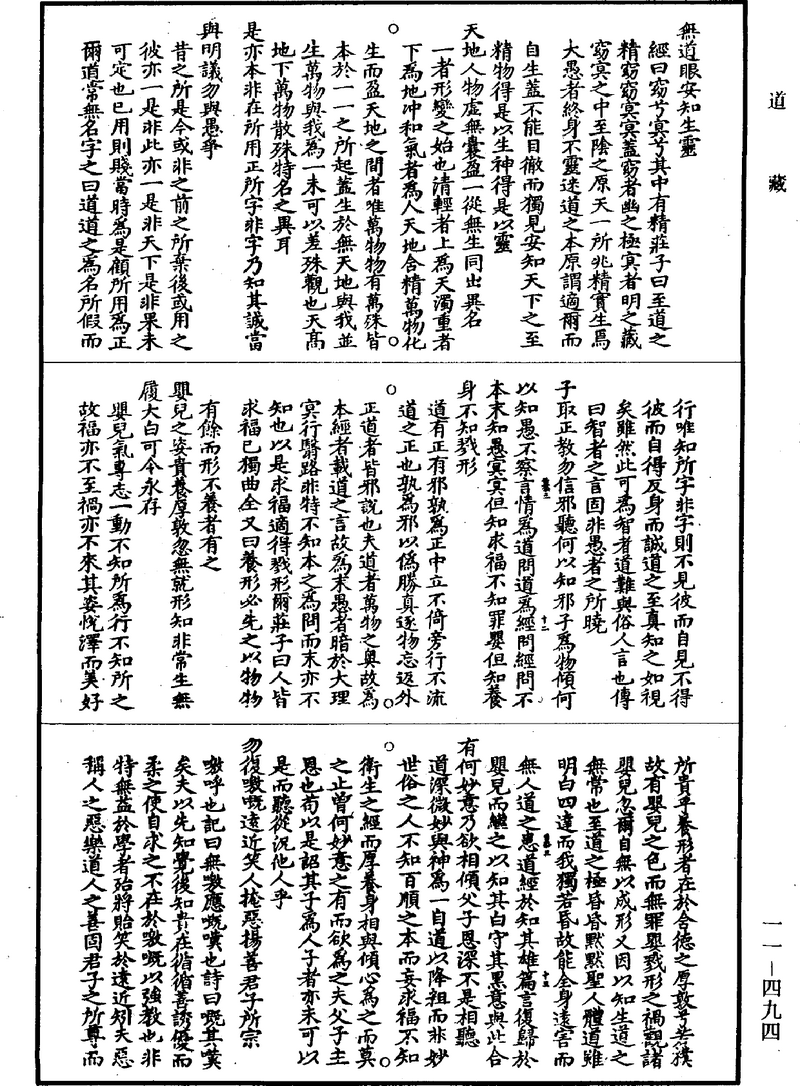 道藏
無道眼安知生靈
經曰窈兮冥兮其中有精莊子曰至道之
精窈窈冥冥蓋窈者幽之極冥者明之藏
窈冥之中至陰之原天一所兆精實生焉
大愚者終身不靈迷道之本原謂適爾而
自生蓋不能目徹而獨見安知天下之至
精物得是以生神得是以靈
天地人物虛無囊盈一從無生同出異名
一者形變之始也清輕者上爲天濁重者
下爲地冲和氣者爲人天地含精萬物化
生而盈天地之間者唯萬物物有萬殊皆
本於一一之所起蓋生於無天地與我並
生萬物與我爲一未可以差殊觀也天高
地下萬物散殊特名之異耳
是亦本非在所用正所字非字乃知其誠當
與明議勿與愚爭
昔之所是今或非之前之所棄後或用之
彼亦一是非此亦一是非天下是非果未
可定也已用則賤當時爲是顧所用爲正
爾道常無名字之曰道道之爲名所假而
行唯知所字非字則不見彼而自見不得
彼而自得反身而誠道之至真知之如視
矣雖然此可爲智者道難與俗人言也傳
曰智者之言固非愚者之所曉
子取正教勿信邪聽何以知邪子爲物傾何
以知愚不察言情爲道問道爲經問經問不
本末知愚冥冥但知求福不知罪嬰但知養
身不知戮形
道有正有邪孰爲正中立不倚旁行不流
道之正也孰爲邪以僞勝真逐物忘返外
正道者皆邪說也夫道者萬物之奧故爲
本經者載道之言故爲末愚者暗於大理
冥行翳路非特不知本之爲問而末亦不
知也以是求福適得戮形爾莊子曰人皆
求福已獨曲全又曰養形必先之以物物
有餘而形不養者有之
嬰兒之姿貴養厚敦忽無就形知非常生無
履大白可令永存
嬰兒氣專志一動不知所爲行不知所之
故福亦不至禍亦不來其姿悅澤而美好
所貴乎養形者在於含德之厚敦兮若樸
故有嬰兒之色而無罪嬰戮形之禍觀諸
嬰兒忽爾自無以成形又因以知生道之
無常也至道之極昏昏默默聖人體道雖
明白四達而我獨若昏故能全身遠害而
無人道之患道經於知其雄篇言復歸於
嬰兒而繼之以知其白守其黑意與此合
有何妙意乃欲相傾父子恩深不是相聽
道深微妙與神爲一自道以降粗而非妙
世俗之人不知百順之本而妄求福不知
衛生之經而厚養身相與傾心爲之而莫
之止曾何妙意之有而欲爲之夫父子主
恩也苟以是詔其子爲人子者亦未可以
是而聽從況他人乎
勿復噭嘅遠近笑人掩惡揚善君子所宗
噭呼也記曰無噭應嘅嘆也詩曰嘅其嘆
矣夫以先知覺後知貴在循循善誘優而
柔之使自求之不在於噭嘅以強教也非
特無益於學者殆將貽笑於遠近矧夫惡
稱人之惡樂道人之善固君子之所尊而
一一—四九四